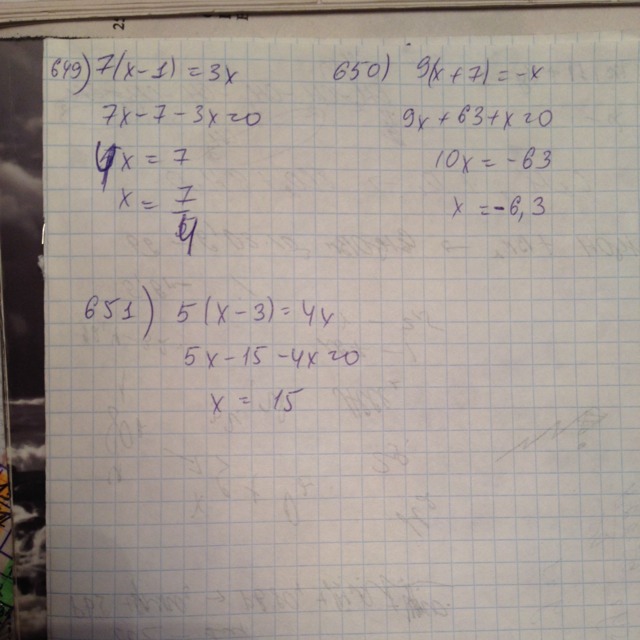 649) 7(x-1) = 3x
7x-7-3x=0
4x = 7
x = 7/4
650) 9(x+7) = -x
9x+63+x=0
10x = -63
x = -6,3
651) 5(x-3) = 4x
5x-15-4x=0
x = 15